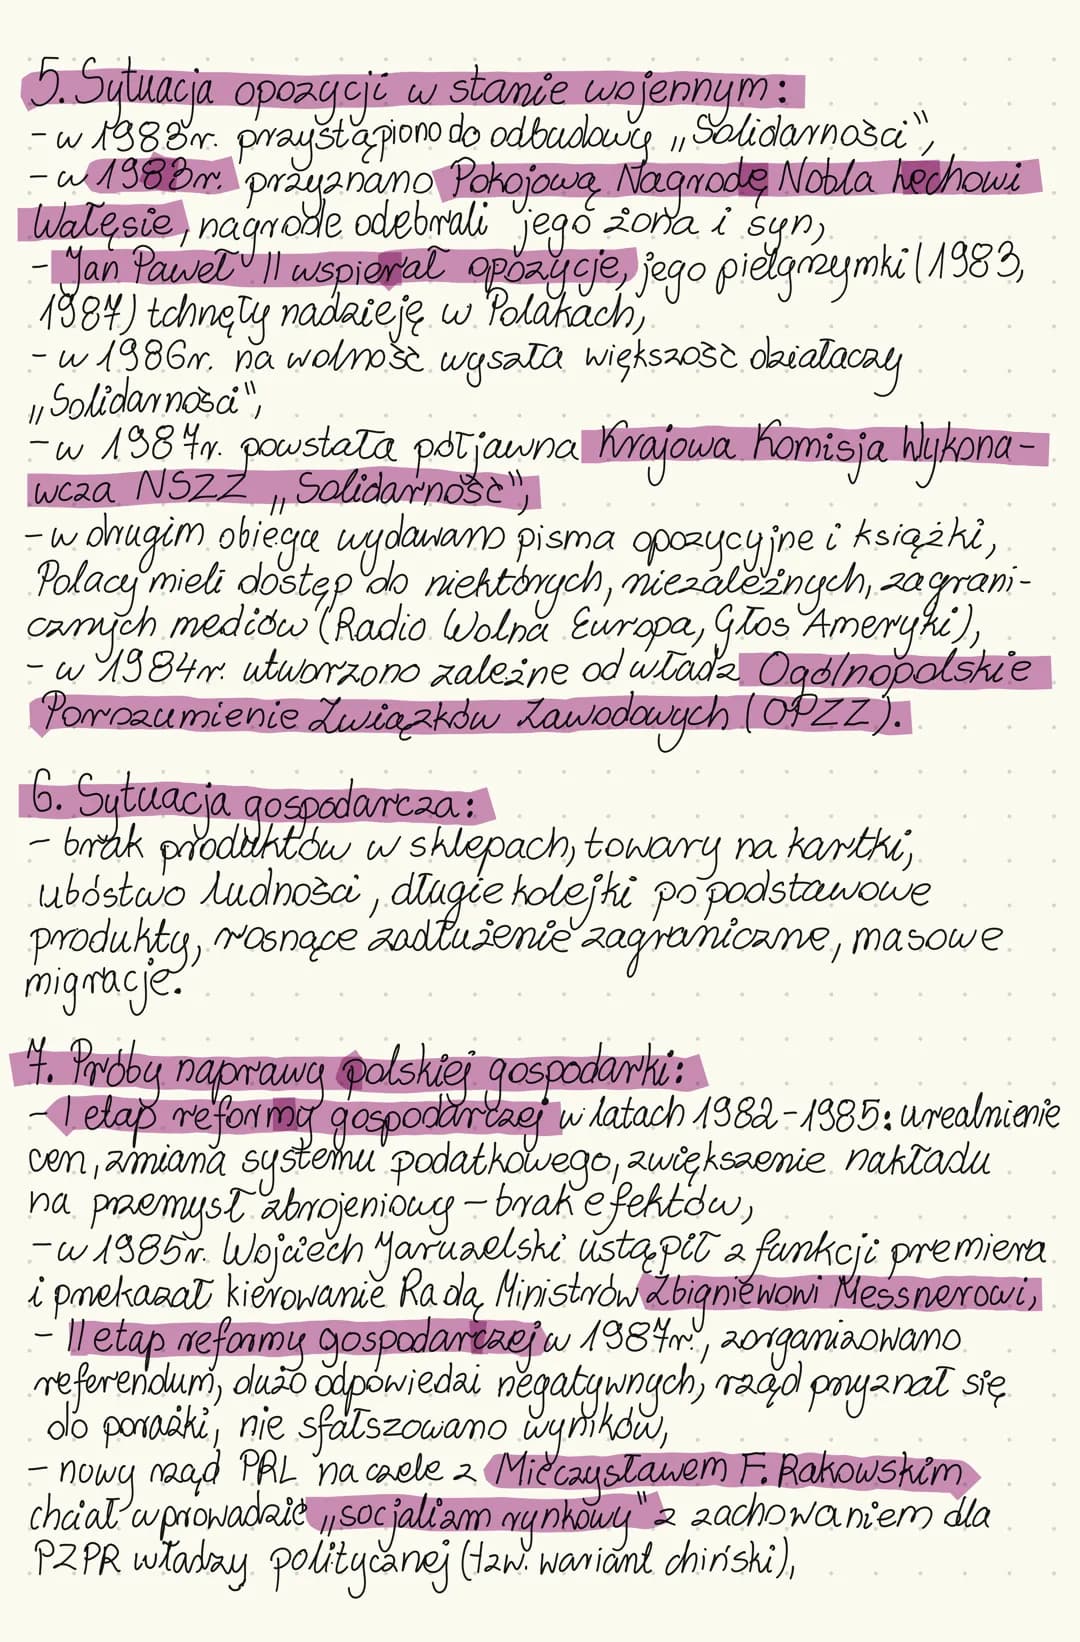 5. Sytuacja opozycji w stanie wojennym:
- w 1983r. przystąpiono do odbudowy „Solidarności",
- w 1983r. przyznano Pokojową Nagrodę Nobla Lechowi
Wałęsie, nagrodę odebrali jego żona i syn,
- Jan Paweł II wspierał opozycję, jego pielgrzymki (1983,
1987) tchnęły nadzieję w Polakach,
- w 1986r. na wolność wyszła większość działaczy
„Solidarności",
- w 1987r. powstała półjawna Krajowa Komisja Wykona-
wcza NSZZ „Solidarność",
- w drugim obiegu wydawano pisma opozycyjne i książki,
Polacy mieli dostęp do niektórych, niezależnych, zagrani-
cznych mediów (Radio Wolna Europa, Głos Ameryki),
- w 1984r. utworzono zależne od władz Ogólnopolskie
Porozumienie Związków Zawodowych (OPZZ).
6. Sytuacja gospodarcza:
- brak produktów w sklepach, towary na kartki,
ubóstwo ludności, długie kolejki po podstawowe
produkty, rosnące zadłużenie zagraniczne, masowe
migracje.
7. Próby naprawy polskiej gospodarki:
- I etap reformy gospodarczej w latach 1982-1985: urealnienie
cen, zmiana systemu podatkowego, zwiększenie nakładu
na przemysł zbrojeniowy – brak efektów,
- w 1985r. Wojciech Jaruzelski ustąpił z funkcji premiera
i przekazał kierowanie Radą Ministrów Zbigniewowi Messnerowi,
- II etap reformy gospodarczej w 1987r., zorganizowano
referendum, dużo odpowiedzi negatywnych, rząd przyznał się
do porażki, nie sfałszowano wyników,
- nowy rząd PRL na czele z Mieczysławem F. Rakowskim
chciał wprowadzić „socjalizm rynkowy" z zachowaniem dla
PZPR władzy politycznej (tzw. wariant chiński),